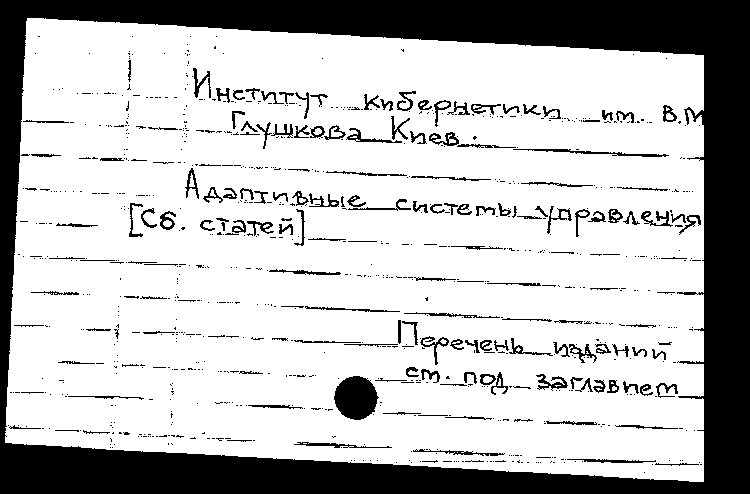 Институт кибернетики им. В.М
Глушкова Киев.
Адаптивные системы управления
[Сб. статей]
Перечень изданий
см. под заглавием